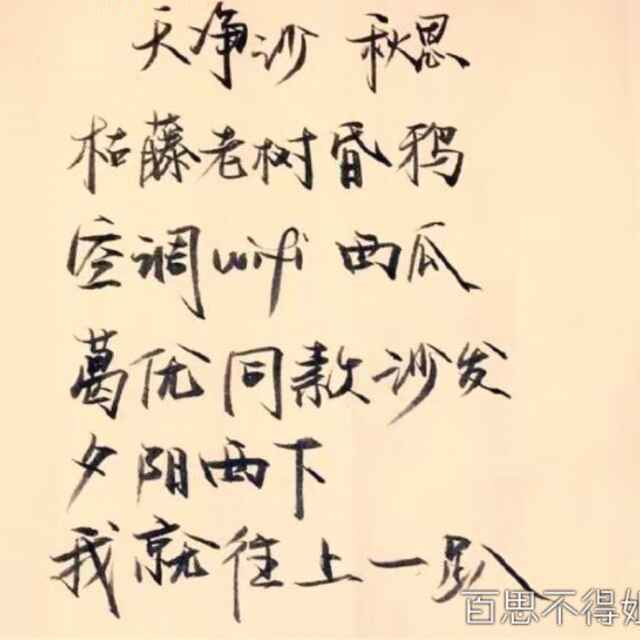 天净沙 秋思
枯藤老树昏鸦
空调wifi西瓜
葛优同款沙发
夕阳西下
我就往上一趴
百思不得